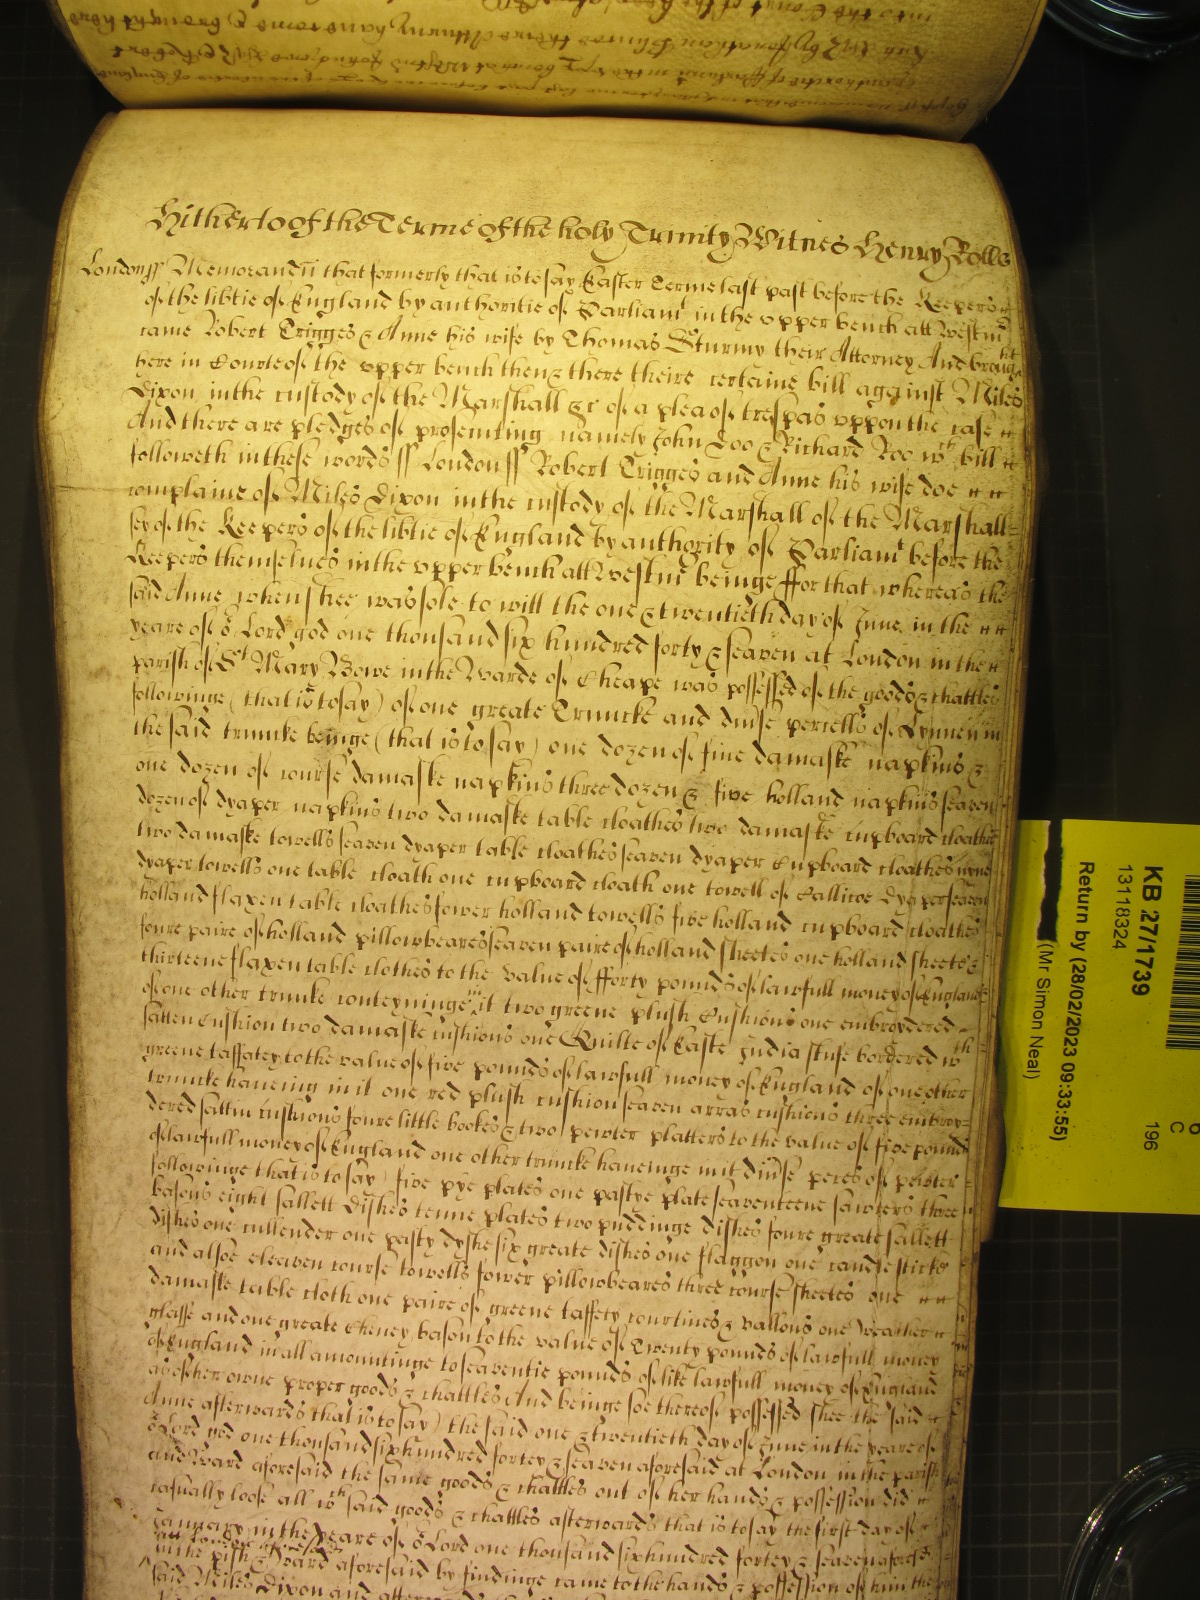 Hitherto of the Terme of the holy Trinity Witnes Henry Rolle
London ss Memorandū that formerly that is to say Easter Terme last past before the Keepers
of the lib̄tie of England by authoritie of Parliamt in the vpper bench att Westmr
came Robert Trigges & Anne his wife by Thomas Sturmy their Attorney And brought
here in Courte of the vpper bench then & there theire certaine bill against Miles
Dixon in the custody of the Marshall &c of a plea of trespas vppon the case
And there are pledges of prosecuting namely John Doo & Richard Roo wch bill
followeth in these words ss London ss Robert Trigges and Anne his wife doe
complaine of Miles Dixon in the custody of the Marshall of the Marshall=
sey of the Keepers of the lib̄tie of England by authority of Parliamt before the
Keepers themselues in the vpper bench att Westmr beinge ffor that whereas the
said Anne when shee was sole to witt the one & twentieth day of June in the
yeare of or Lord god one thousand six hundred forty & seaven at London in the
parish of St Mary Bowe in the Warde of Cheape was possessed of the goods & chattles
followinge (that is to say) of one greate Truncke and diuse percells of Lynnen in
the said trunke beinge (that is to say) one dozen of fine damaske napkins &
one dozen of course damaske napkins three dozen & five holland napkins seaven
dozen of dyaper napkins two damaske table cloathes two damaske cupboard cloathes
two damaske towells seaven dyaper table cloathes seaven dyaper Cupboard cloathes nyne
dyaper towells one table cloath one cupboard cloath one towell of Callicoe dyaper seaven
holland flaxen table cloathes fower holland towells five holland cupboard cloathes
foure paire of holland pillowbeares seaven paire of holland sheetes one holland sheete &
thirteene flaxen table clothes to the value of fforty pounds of lawfull money of England &
of one other trunke conteyninge in it two greene plush Cushions one embroydered
satten Cushion two damaske cushions one Quilte of Easte India stufe bordered wth
greene taffatey to the value of five pounds of lawfull money of England of one other
truncke haueing in it one red plush cushion seaven arras cushions three embroy=
dered sattin cushions foure little bookes & two pewter platters to the value of five pounds
of lawfull money of England one other truncke haueinge in it diuse peces of pewter
followinge that is to say) five pye plates one pastye plate seaventeene sawcers three
basons eight sallett dishes tenne plates two puddinge dishes foure greate sallett
dishes one cullender one pasty dyshe six greate dishes one flaggon one candlesticke
and alsoe eleaven course towells fower pillowbeares three course sheetes one
damaske table cloth one paire of greene taffety courtines & vallons one weather
glasse and one greate Cheney bason to the value of Twenty pounds of lawfull money
of England in all amountinge to seaventie pounds of like lawfull money of England
as of her owne proper goods & chattles And beinge soe thereof possessed shee the said
Anne afterwards that is to say) the said one & twentieth day of June in the yeare of
or Lord god one thousand sixhundred fortey & seaven aforesaid at London in the parish
and Ward aforesaid the same goods & chattles out of her hands & possession did
casually loose all wch said goods & chattles afterwards that is to say the first day of
January in the yeare of or Lord one thousand sixhundred fortey & seaven aforesd
att London aforesaid
in the pish & Ward aforesaid by findinge came to the hands & possession of him the
said Miles Dixon and
KB 27/1739
13118324
Return by (28/02/2023 09:33:55)
(Mr Simon Neal)
C
196